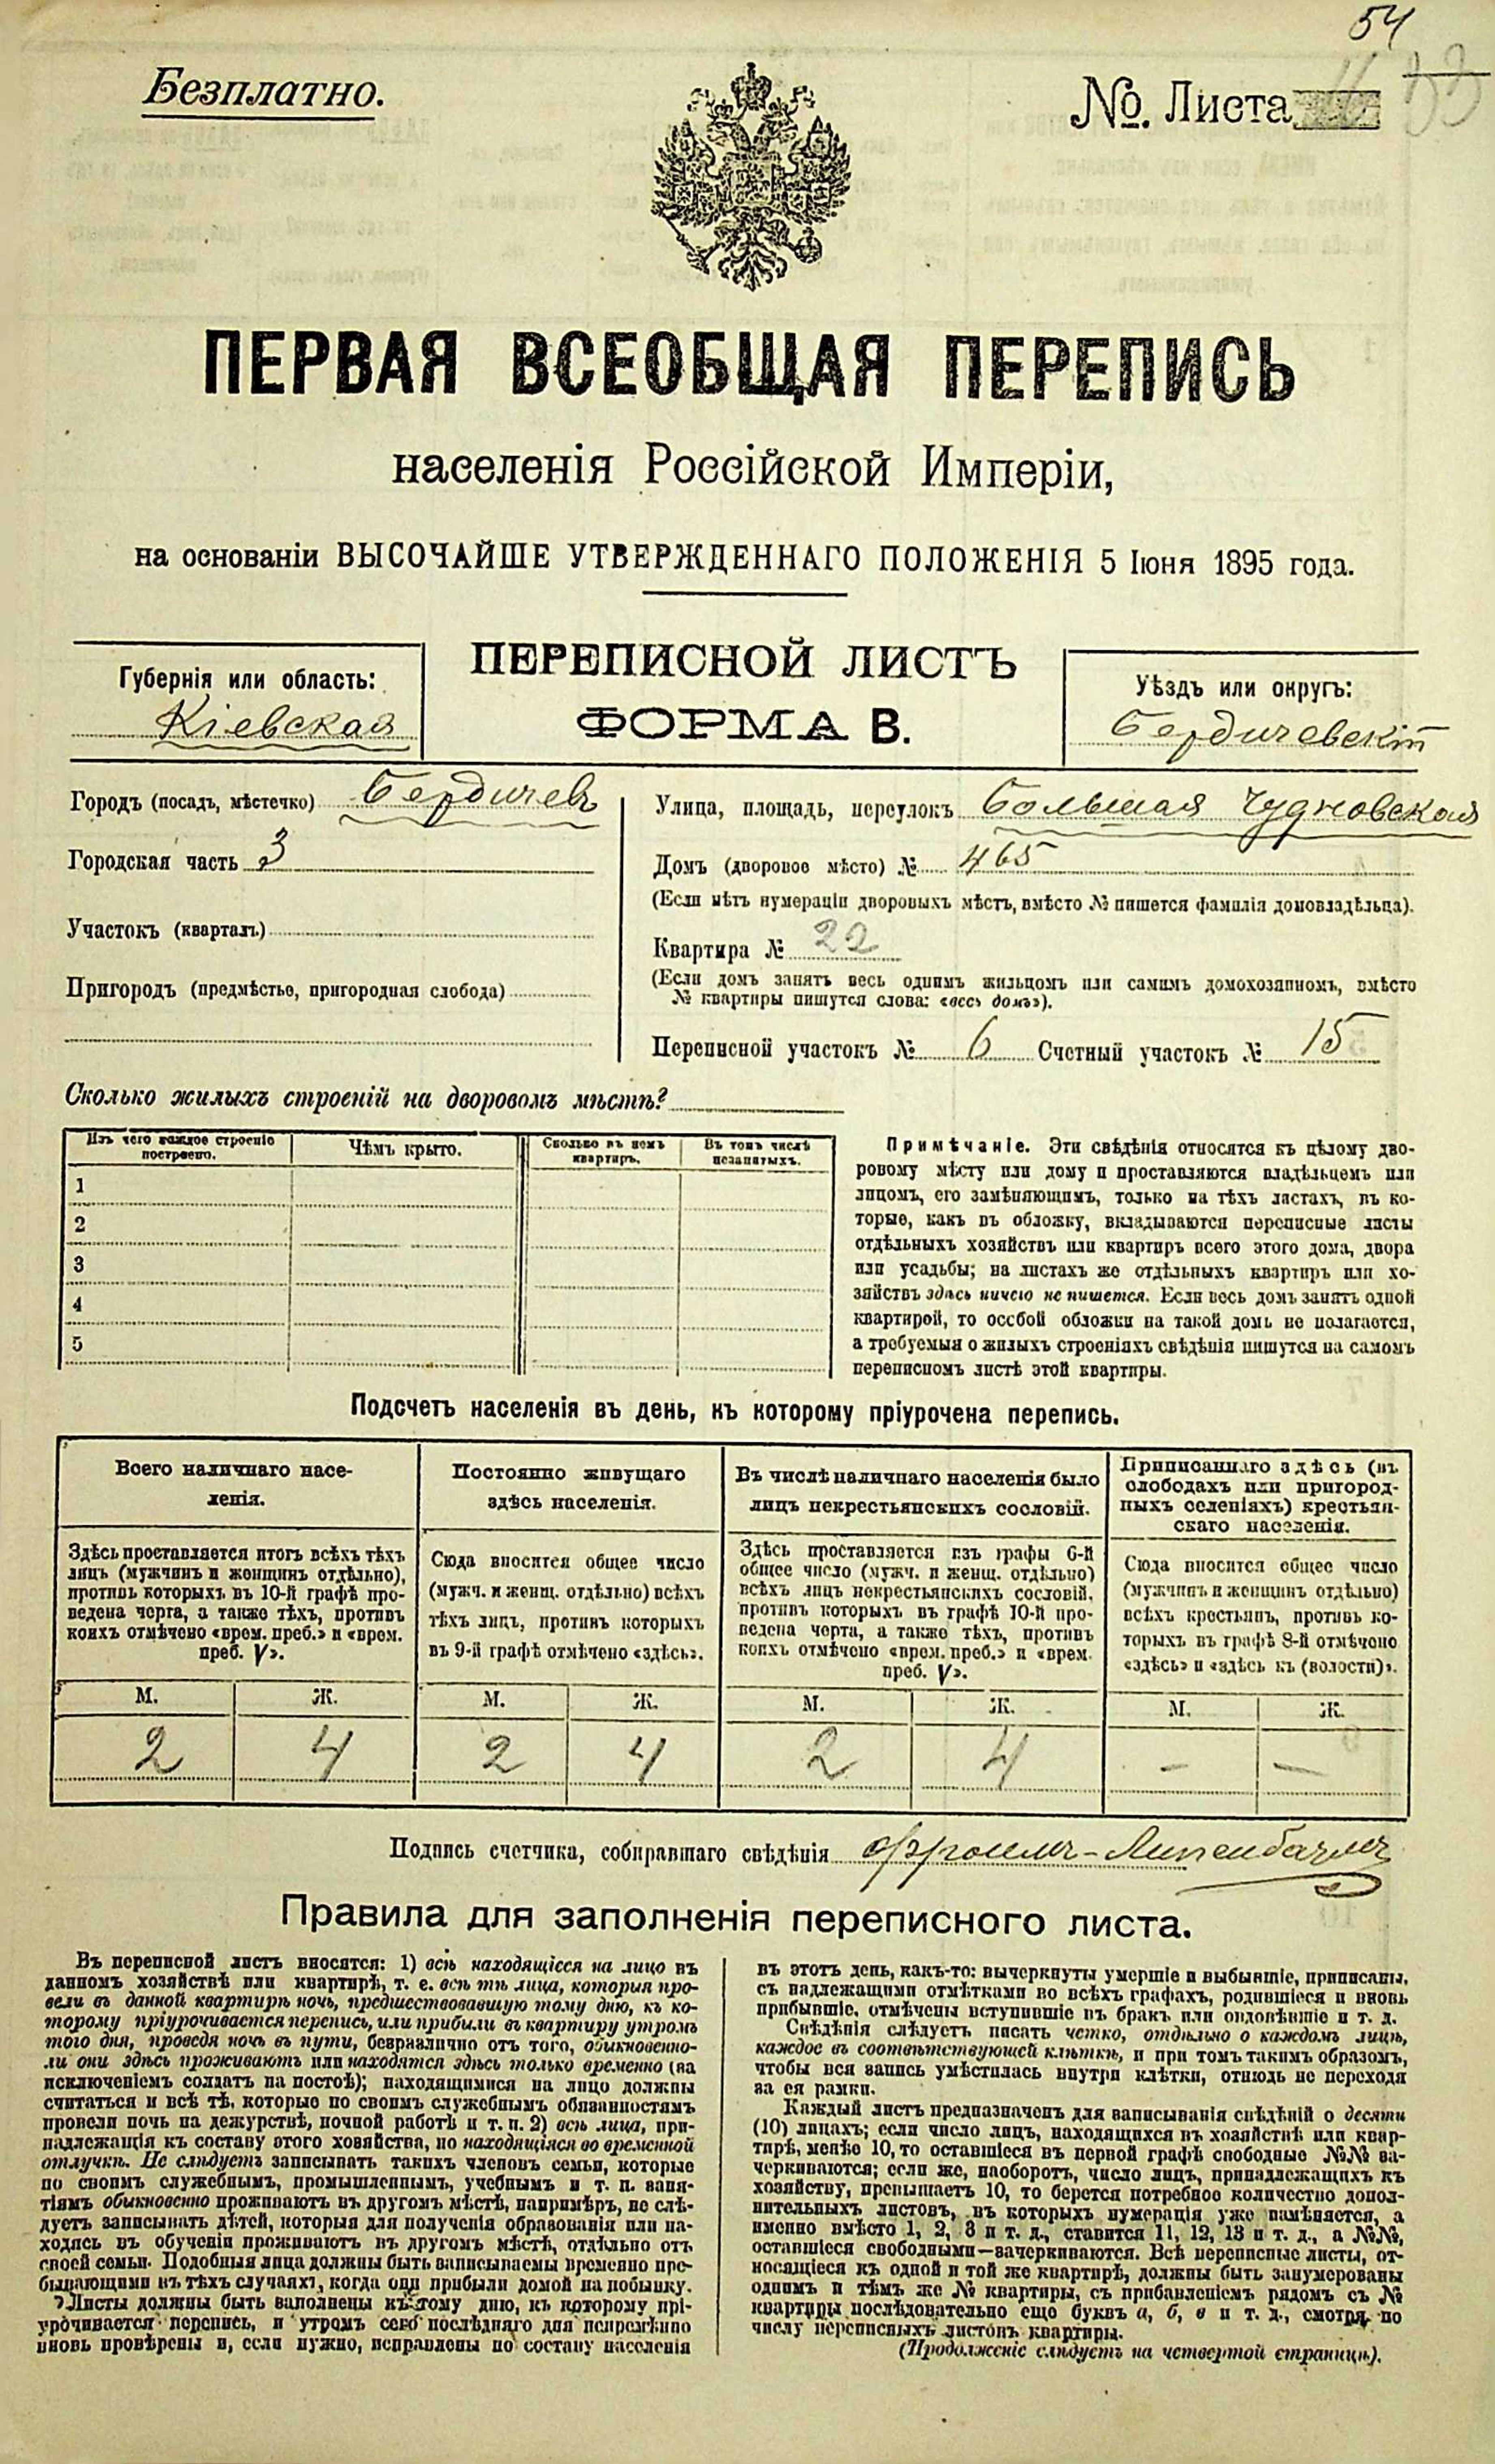 54
Безплатно.
№. Листа
ПЕРВАЯ ВСЕОБЩАЯ ПЕРЕПИСЬ
населенія Россійской Имперіи,
на основаніи ВЫСОЧАЙШЕ УТВЕРЖДЕННАГО ПОЛОЖЕНІЯ 5 Іюня 1895 года.
Губернія или область:
Кіевская
ПЕРЕПИСНОЙ ЛИСТЪ
ФОРМА В.
Уѣздъ или округъ:
Бердичевскій
Городъ (посадъ, мѣстечко) Бердичевъ
Городская часть 3
Участокъ (кварталъ)
Пригородъ (предмѣстье, пригородная слобода)
Улица, площадь, переулокъ Большая Чудновская
Домъ (дворовое мѣсто) № 465
(Если нѣтъ нумераціи дворовыхъ мѣстъ, вмѣсто № пишется фамилія домовладѣльца).
Квартира № 22
(Если домъ занятъ весь однимъ жильцомъ или самимъ домохозяиномъ, вмѣсто
№ квартиры пишутся слова: «весь домъ»).
Переписной участокъ № 6 Счетный участокъ № 15
Сколько жилыхъ строеній на дворовомъ мѣстѣ?
Изъ чего каждое строеніе
построено.
Чѣмъ крыто.
Сколько въ немъ
квартиръ.
Въ томъ числѣ
незанятыхъ.
1
2
3
4
5
Примѣчаніе. Эти свѣдѣнія относятся къ цѣлому дво-
ровому мѣсту или дому и проставляются владѣльцемъ или
лицомъ, его замѣняющимъ, только на тѣхъ листахъ, въ ко-
торые, какъ въ обложку, вкладываются переписные листы
отдѣльныхъ хозяйствъ или квартиръ всего этого дома, двора
или усадьбы; на листахъ же отдѣльныхъ квартиръ или хо-
зяйствъ здѣсь ничего не пишется. Если весь домъ занятъ одной
квартирой, то особой обложки на такой домъ не полагается,
а требуемыя о жилыхъ строеніяхъ свѣдѣнія пишутся на самомъ
переписномъ листѣ этой квартиры.
Подсчетъ населенія въ день, къ которому пріурочена перепись.
Всего наличнаго насе-
ленія.
Постоянно живущаго
здѣсь населенія.
Въ числѣ наличнаго населенія было
лицъ некрестьянскихъ сословій.
Приписаннаго здѣсь (въ
слободахъ или пригород-
ныхъ селеніяхъ) крестьян-
скаго населенія.
Здѣсь проставляется итогъ всѣхъ тѣхъ
лицъ (мужчинъ и женщинъ отдѣльно),
противъ которыхъ въ 10-й графѣ про-
ведена черта, а также тѣхъ, противъ
коихъ отмѣчено «врем. преб.» и «врем.
преб. V».
Сюда вносится общее число
(мужч. и женщ. отдѣльно) всѣхъ
тѣхъ лицъ, противъ которыхъ
въ 9-й графѣ отмѣчено «здѣсь».
Здѣсь проставляется изъ графы 6-й
общее число (мужч. и женщ. отдѣльно)
всѣхъ лицъ некрестьянскихъ сословій,
противъ которыхъ въ графѣ 10-й про-
ведена черта, а также тѣхъ, противъ
коихъ отмѣчено «врем. преб.» и «врем.
преб. V».
Сюда вносится общее число
(мужчинъ и женщинъ отдѣльно)
всѣхъ крестьянъ, противъ ко-
торыхъ въ графѣ 8-й отмѣчено
«здѣсь» и «здѣсь къ (волости)».
М. Ж. М. Ж. М. Ж. М. Ж.
2 4 2 4 2 4 — —
Подпись счетчика, собиравшаго свѣдѣнія
Правила для заполненія переписного листа.
Въ переписной листъ вносятся: 1) всѣ находящіеся на лицо въ
данномъ хозяйствѣ или квартирѣ, т. е. всѣ тѣ лица, которыя про-
вели въ данной квартирѣ ночь, предшествовавшую тому дню, къ ко-
торому пріурочивается перепись, или прибыли въ квартиру утромъ
того дня, проведя ночь въ пути, безразлично отъ того, обыкновенно-
ли они здѣсь проживаютъ или находятся здѣсь только временно (за
исключеніемъ солдатъ на постоѣ); находящимися на лицо должны
считаться и всѣ тѣ, которые по своимъ служебнымъ обязанностямъ
провели ночь на дежурствѣ, ночной работѣ и т. п. 2) всѣ лица, при-
надлежащія къ составу этого хозяйства, но находящіяся во временной
отлучкѣ. Не слѣдуетъ записывать такихъ членовъ семьи, которые
по своимъ служебнымъ, промышленнымъ, учебнымъ и т. п. заня-
тіямъ обыкновенно проживаютъ въ другомъ мѣстѣ, напримѣръ, не слѣ-
дуетъ записывать дѣтей, которыя для полученія образованія или на-
ходясь въ обученіи проживаютъ въ другомъ мѣстѣ, отдѣльно отъ
своей семьи. Подобныя лица должны быть записываемы временно пре-
бывающими въ тѣхъ случаяхъ, когда они прибыли домой на побывку.
Листы должны быть заполнены къ тому дню, къ которому прі-
урочивается перепись, и утромъ сего послѣдняго дня непремѣнно
вновь провѣрены и, если нужно, исправлены по составу населенія
въ этотъ день, какъ-то: вычеркнуты умершіе и выбывшіе, приписаны,
съ надлежащими отмѣтками во всѣхъ графахъ, родившіеся и вновь
прибывшіе, отмѣчены вступившіе въ бракъ или овдовѣвшіе и т. д.
Свѣдѣнія слѣдуетъ писать четко, отдѣльно о каждомъ лицѣ,
каждое въ соотвѣтствующей клѣткѣ, и при томъ такимъ образомъ,
чтобы вся запись умѣстилась внутри клѣтки, отнюдь не переходя
за ея рамки.
Каждый листъ предназначенъ для записыванія свѣдѣній о десяти
(10) лицахъ; если число лицъ, находящихся въ хозяйствѣ или квар-
тирѣ, менѣе 10, то оставшіеся въ первой графѣ свободные №№ за-
черкиваются; если же, наоборотъ, число лицъ, принадлежащихъ къ
хозяйству, превышаетъ 10, то берется потребное количество допол-
нительныхъ листовъ, въ которыхъ нумерація уже измѣняется, а
именно вмѣсто 1, 2, 3 и т. д., ставится 11, 12, 13 и т. д., а №№,
оставшіеся свободными—зачеркиваются. Всѣ переписные листы, от-
носящіеся къ одной и той же квартирѣ, должны быть занумерованы
однимъ и тѣмъ же № квартиры, съ прибавленіемъ рядомъ съ №
квартиры послѣдовательно еще буквъ а, б, в и т. д., смотря по
числу переписныхъ листовъ квартиры.
(Продолженіе слѣдуетъ на четвертой страницѣ).